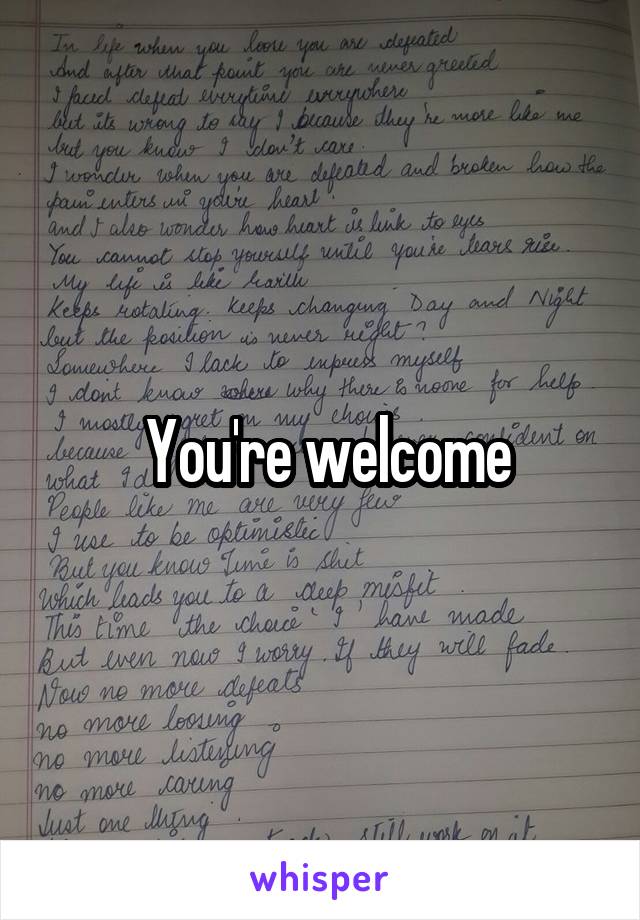 In life when you loose you are defeated
And after that point you are never greeted
I faced defeat everytime everywhere
but its wrong to say I because they're more like me
but you know I don't care.
I wonder when you are defeated and broken how the
pain enters in you're heart.
and I also wonder how heart is link to eyes
You cannot stop yourself until you're tears rise.
My life is like Earth
Keeps rotating. Keeps changing Day and Night
but the position is never right?
Somewhere I lack to express myself
I dont know why there is noone for help
I mostly regret on my choices.
because confident on
You're welcome
what I d
People like me are very few
I use to be optimistic
But you know Time is shit
Which leads you to a deep misfit.
This time the choice 'I' have made
But even now I worry. If they will fade.
Now no more defeats
no more loosing.
no more listening
no more caring
Just one thing.
still work on it
whisper